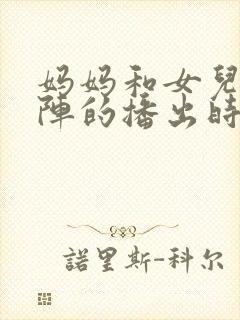 妈妈和女兒
陣的播出時
諾里斯-科尔